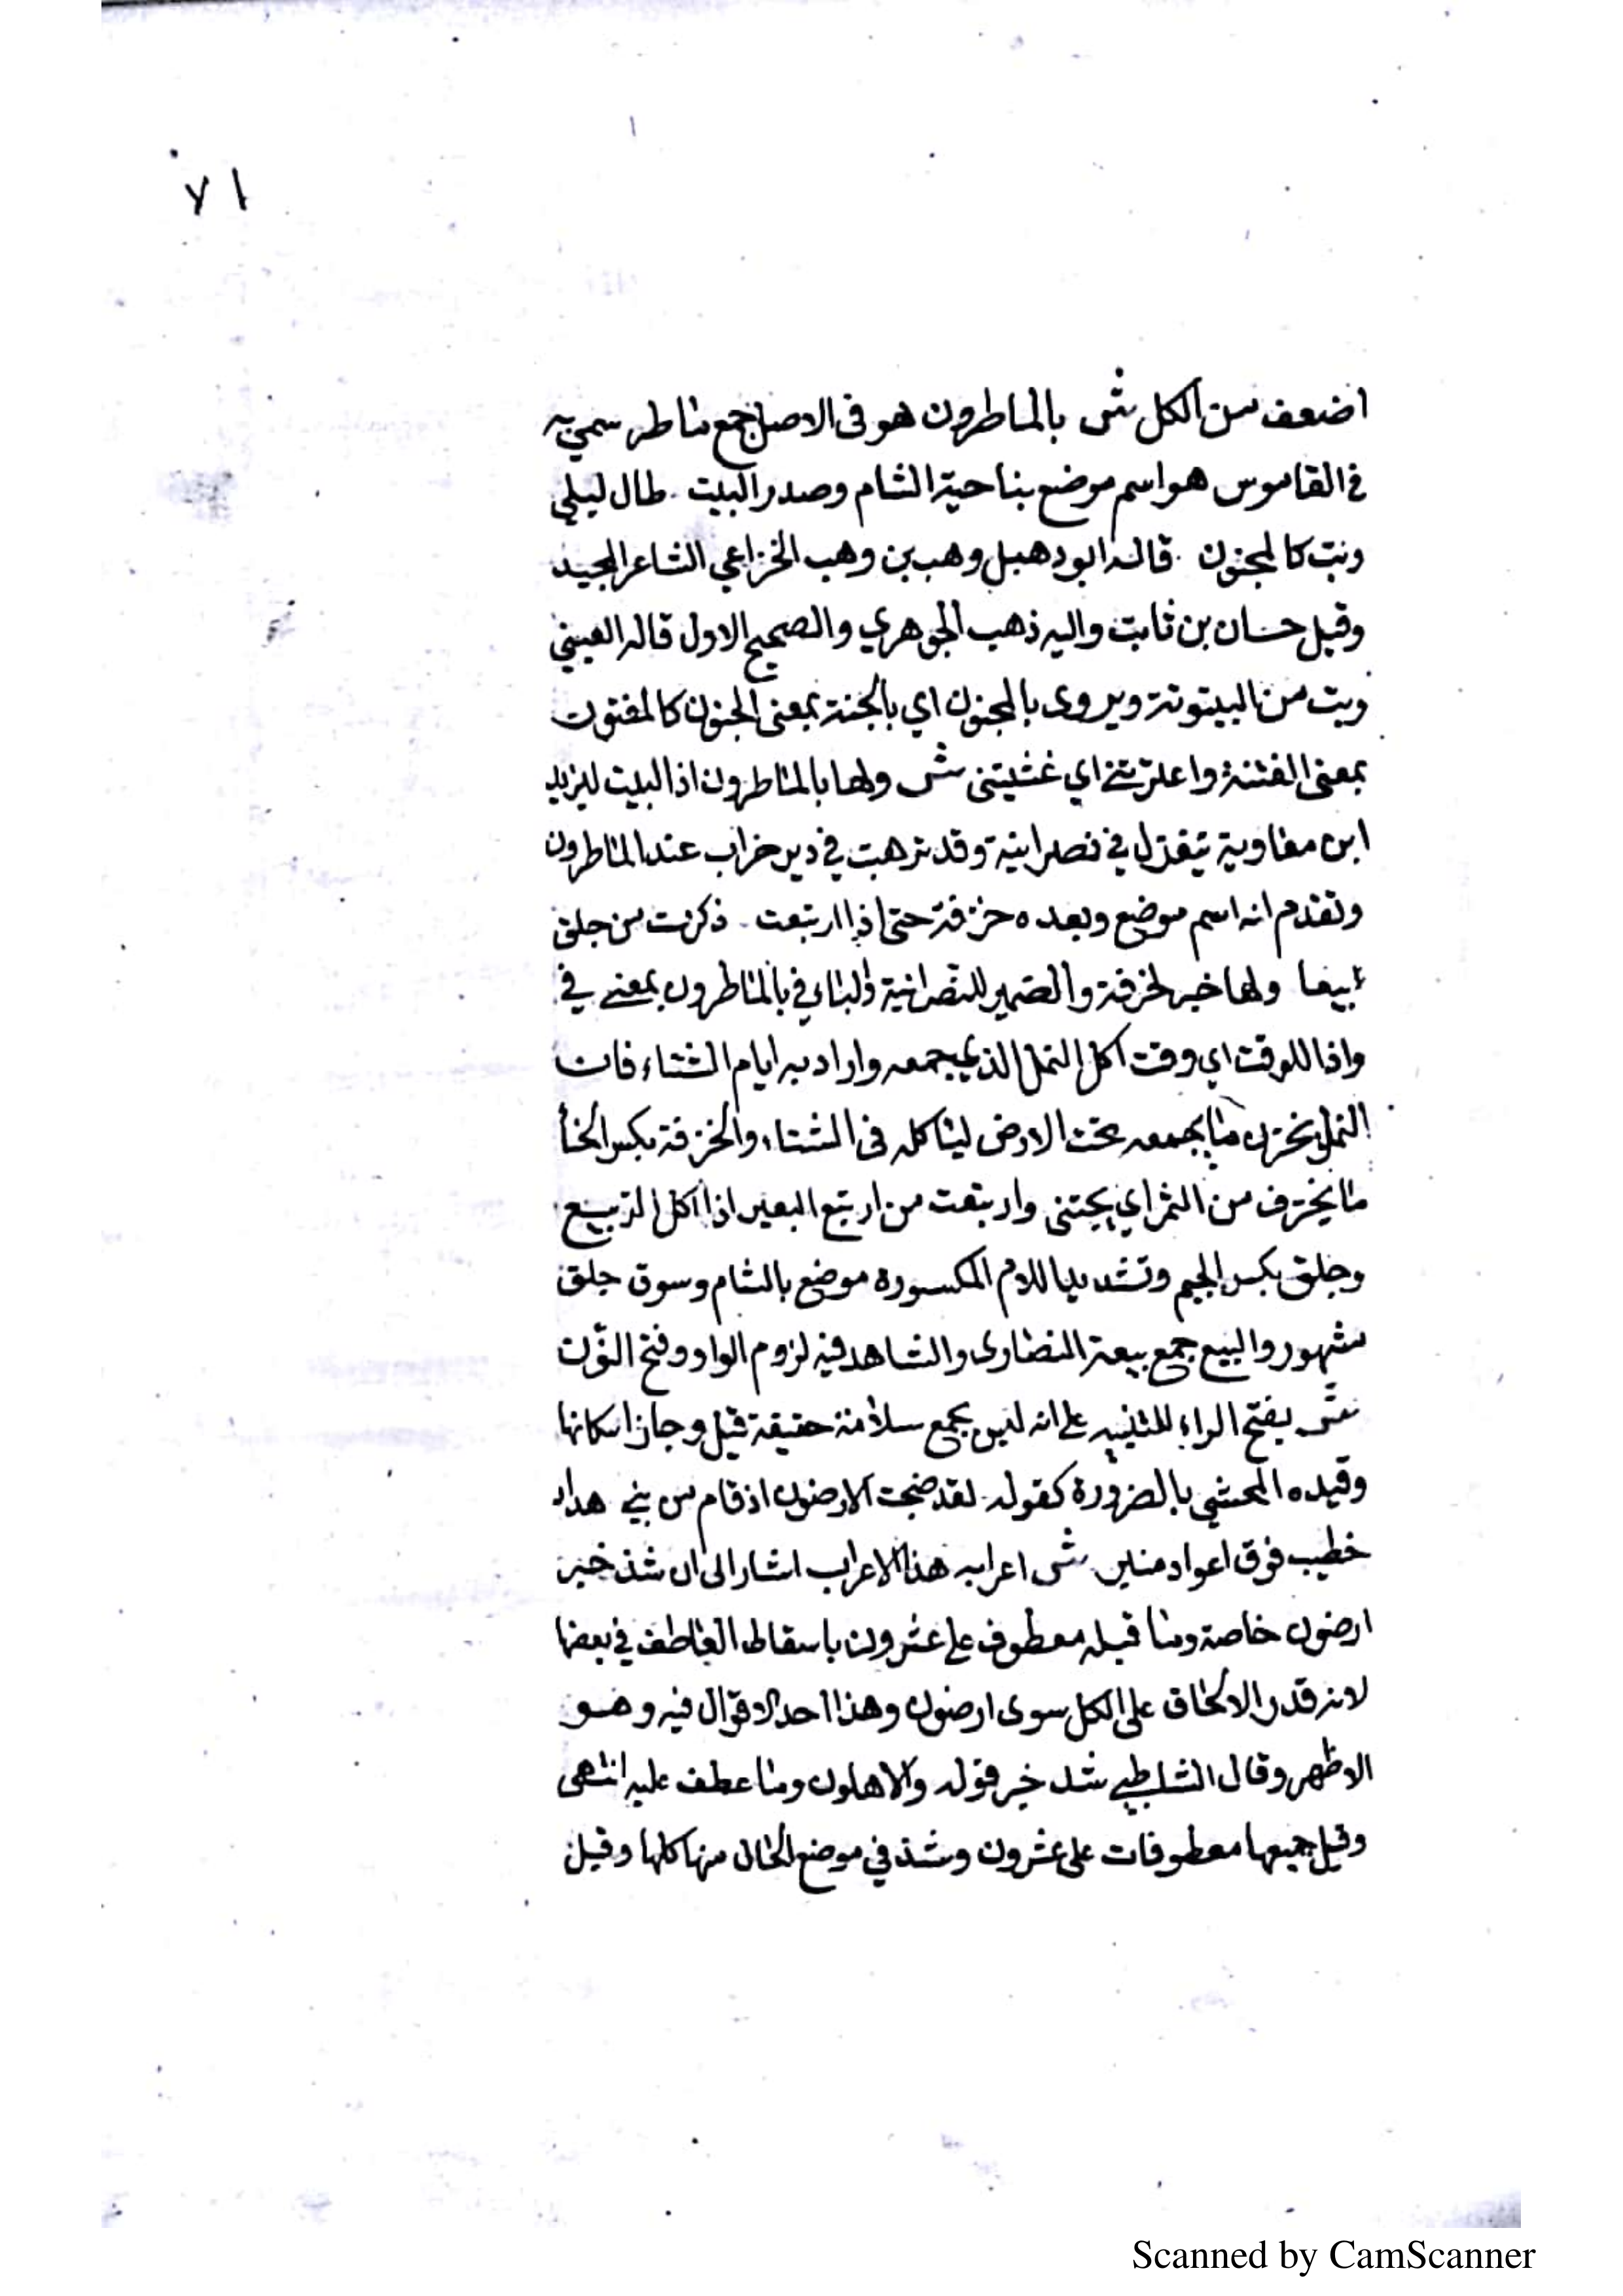 ٧١
اضعف من الكل ش بالماطرون هو فى الاصل جمع ماطر سمي به
في القاموس هو اسم موضع بناحية الشام وصدر البيت طال ليلي
وبت كالمجنون قاله ابو دهبل وهب بن وهب الخزاعي الشاعر المجيد
وقيل حسان بن ثابت واليه ذهب الجوهري والصحيح الاول قاله العيني
وبت من البيتوتة ويروى بالمجنون اي بالجنة بمعنى الجنون كالمفتون
بمعنى الفتنة واعترتني اي غشيتنى ش ولها بالماطرون اذا البيت ليزيد
ابن معاوية يتغزل في نصرانية وقد ترهبت في دير خراب عند الماطرون
وتقدم انه اسم موضع وبعده خرفة حتى اذا ارتبعت ذكرت من جلق
بيعا ولها خبر لخرفة والضمير للنصرانية والباء في بالماطرون بمعنى في
واذا للوقت اي وقت اكل النمل الذي يجمعه واراد به ايام الشتاء فان
النمل يخزن ما يجمعه تحت الارض لياكله فى الشتاء والخرفة بكسر الخا
ما يخترف من الثمر اي يجتنى واربتعت من اربتع البعير اذا اكل الربيع
وجلق بكسر الجيم وتشديد اللام المكسورة موضع بالشام وسوق جلق
مشهور والبيع جمع بيعة النصارى والشاهد فيه لزوم الواو وفتح النون
ش بفتح الراء للتنبيه على انه ليس بجمع سلامة حقيقة قيل وجاز اسكانها
وقيده المحشي بالضرورة كقوله لقد ضجت الارضون اذ قام من بني هداد
خطيب فوق اعواد منبر ش اعرابه هذا الاعراب اشار الى ان شذ خبر
ارضون خاصة وما قبله معطوف على عشرون باسقاط العاطف في بعضها
لانه قدر الالحاق على الكل سوى ارضون وهذا احد الاقوال فيه وهو
الاظهر وقال الشاطبي شذ خبر قوله والاهلون وما عطف عليه انتهى
وقيل جميعها معطوفات على عشرون وشذ في موضع الحال منها كلها وقيل
Scanned by CamScanner